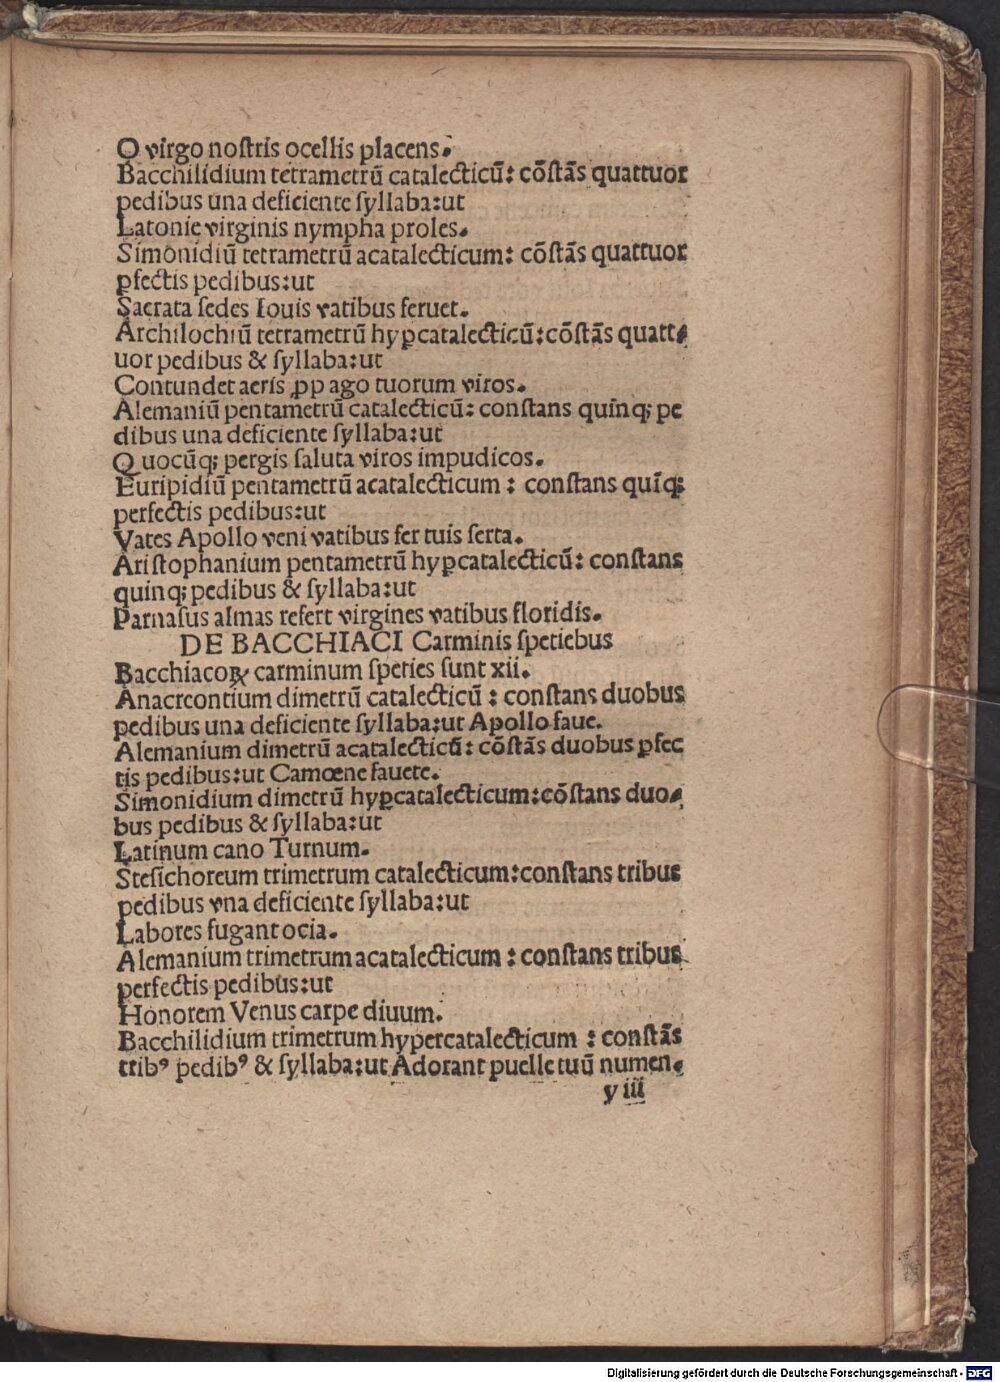 O virgo noſtris ocellis placens.
Bacchilidium tetrametrū catalecticū: cōſtās quattuor
pedibus una deficiente ſyllaba:ut
Latonie virginis nympha proles.
Simonidiū tetrametrū acatalecticum: cōſtās quattuor
ꝑfectis pedibus:ut
Sacrata ſedes Iouis vatibus feruet.
Archilochiū tetrametrū hyꝑcatalecticū:cōſtās quatt-
uor pedibus & ſyllaba:ut
Contundet aeris ꝓpago tuorum viros.
Alemaniū pentametrū catalecticū: conſtans quinqꝫ pe
dibus una deficiente ſyllaba:ut
Quocūqꝫ pergis ſaluta viros impudicos.
Euripidiū pentametrū acatalecticum: conſtans quīqꝫ
perfectis pedibus:ut
Vates Apollo veni vatibus fer tuis ſerta.
Ariſtophanium pentametrū hyꝑcatalecticū: conſtans
quinqꝫ pedibus & ſyllaba:ut
Parnaſus almas refert virgines vatibus floridis.
DE BACCHIACI Carminis ſpetiebus
Bacchiacoꝝ carminum ſpeties ſunt xii.
Anacreontium dimetrū catalecticū: conſtans duobus
pedibus una deficiente ſyllaba:ut Apollo faue.
Alemanium dimetrū acatalecticū: cōſtās duobus ꝑfec
tis pedibus:ut Camœne fauete.
Simonidium dimetrū hyꝑcatalecticum:cōſtans duo-
bus pedibus & ſyllaba:ut
Latinum cano Turnum.
Steſichoreum trimetrum catalecticum:conſtans tribus
pedibus vna deficiente ſyllaba:ut
Labores fugant ocia.
Alemanium trimetrum acatalecticum: conſtans tribus
perfectis pedibus:ut
Honorem Venus carpe diuum.
Bacchilidium trimetrum hypercatalecticum: conſtās
tribꝰ pedibꝰ & ſyllaba:ut Adorant puelle tuū numen.
y iii
Digitalisierung gefördert durch die Deutsche Forschungsgemeinschaft - DFG